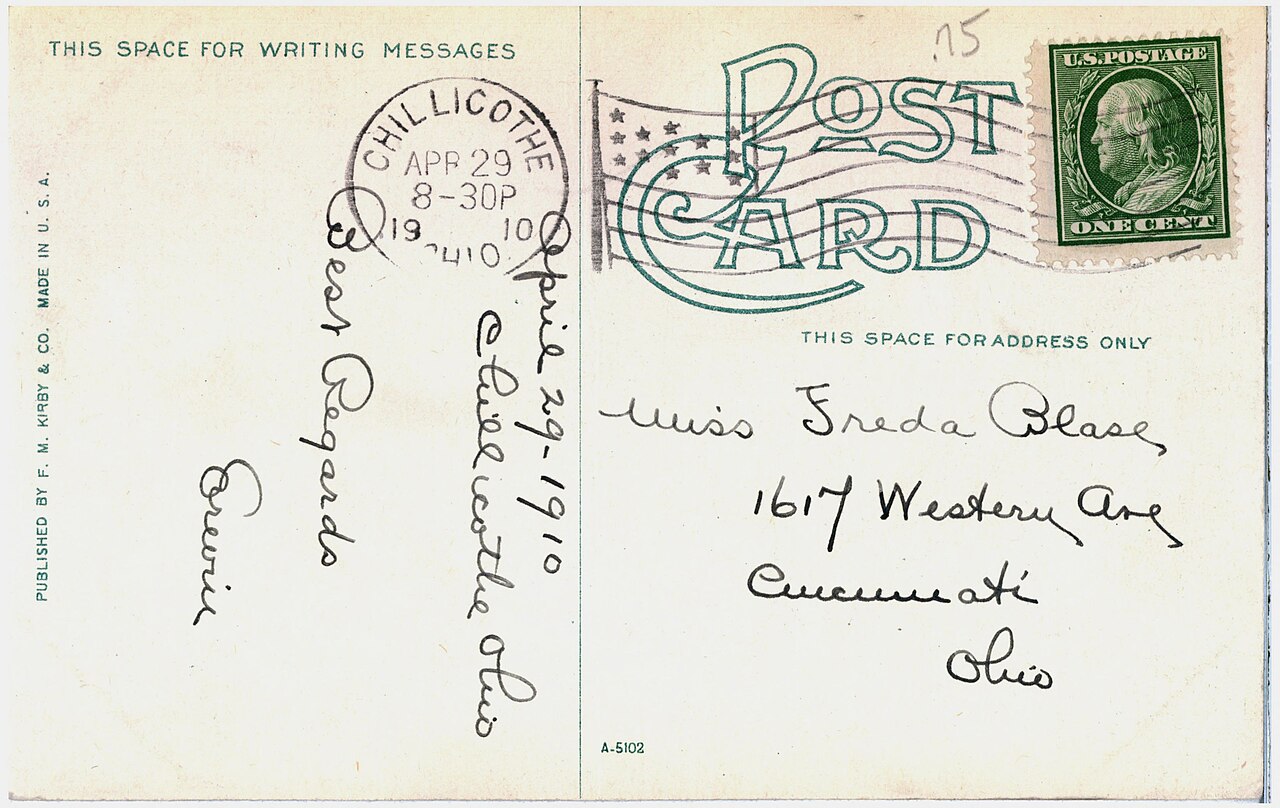 THIS SPACE FOR WRITING MESSAGES
PUBLISHED BY F. M. KIRBY & CO. MADE IN U. S. A.
CHILLICOTHE
APR 29
8-30P
19 10
OHIO
April 29-1910
Chillicothe Ohio
Best Regards
.75
POST
CARD
U.S. POSTAGE
ONE CENT
THIS SPACE FOR ADDRESS ONLY
Miss Freda Blase
1617 Western Ave
Cincinnati
Ohio
A-5102